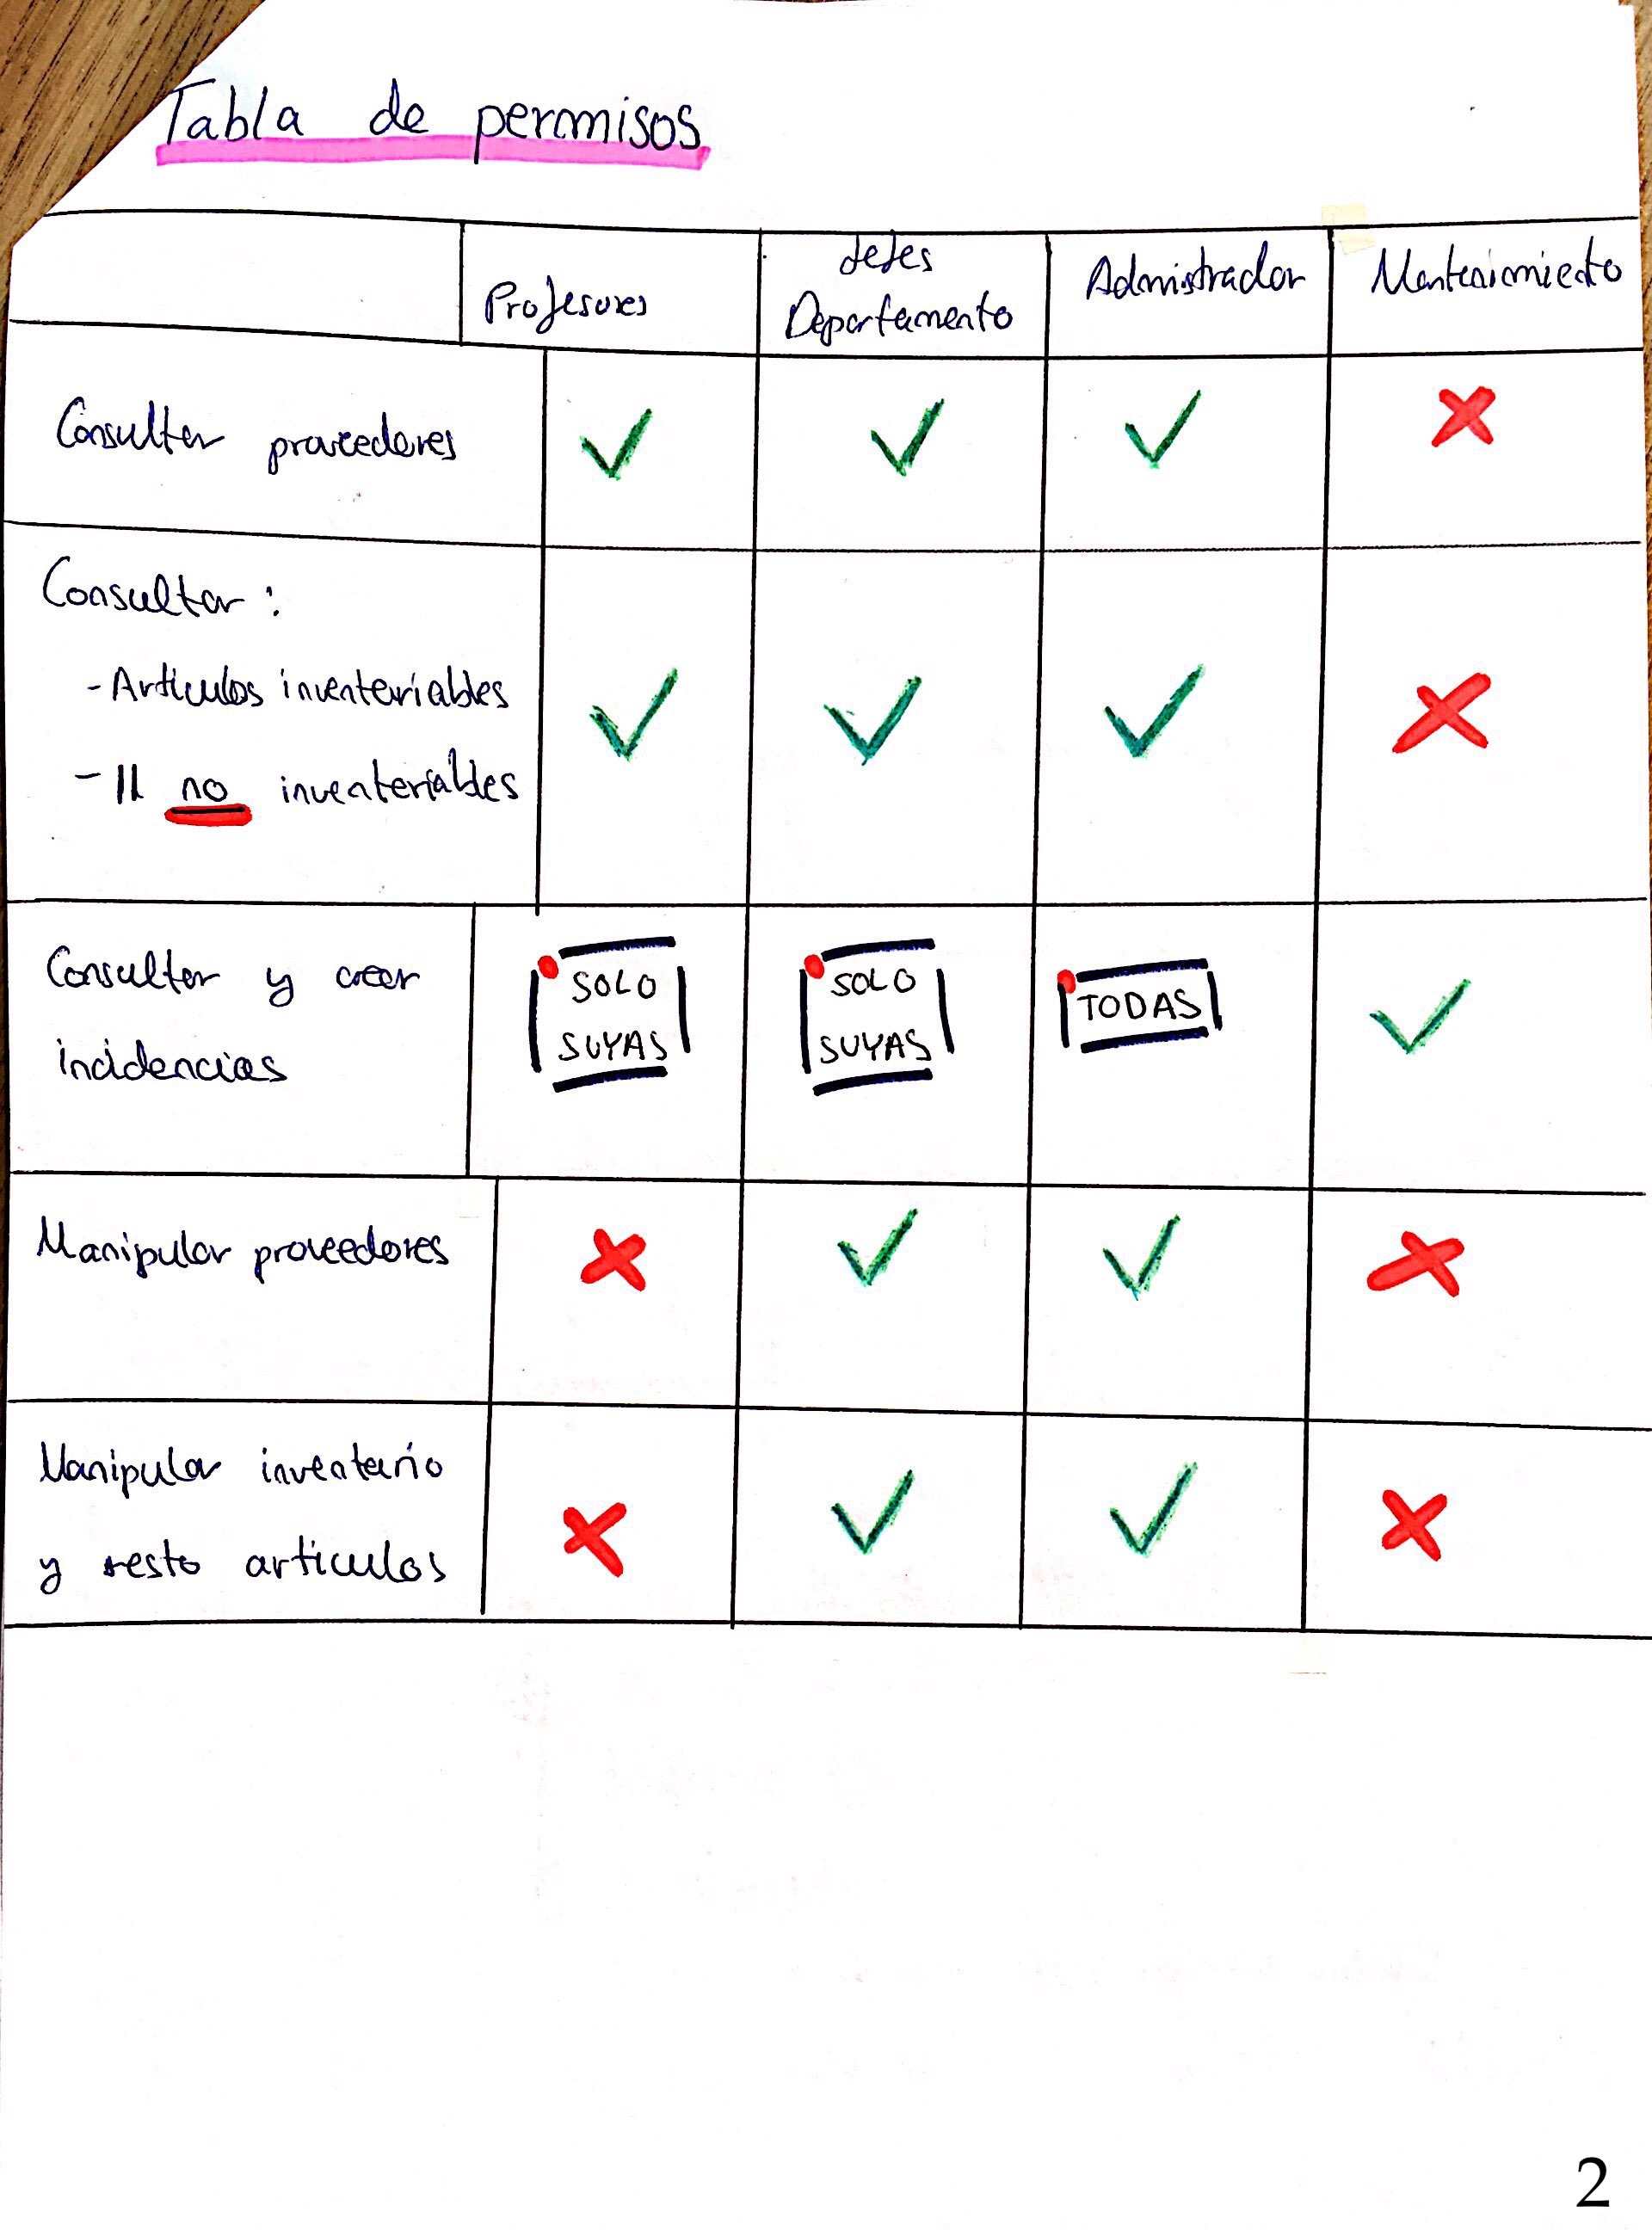 Tabla de permisos
Profesores
Jefes
Departamento
Admistrador
Mantenimiento
Consultar proveedores
Consultar :
- Artículos inventariables
- II no inventariables
Consultar y crear
incidencias
SOLO
SUYAS
SOLO
SUYAS
TODAS
Manipular proveedores
Manipular inventario
y resto artículos
2